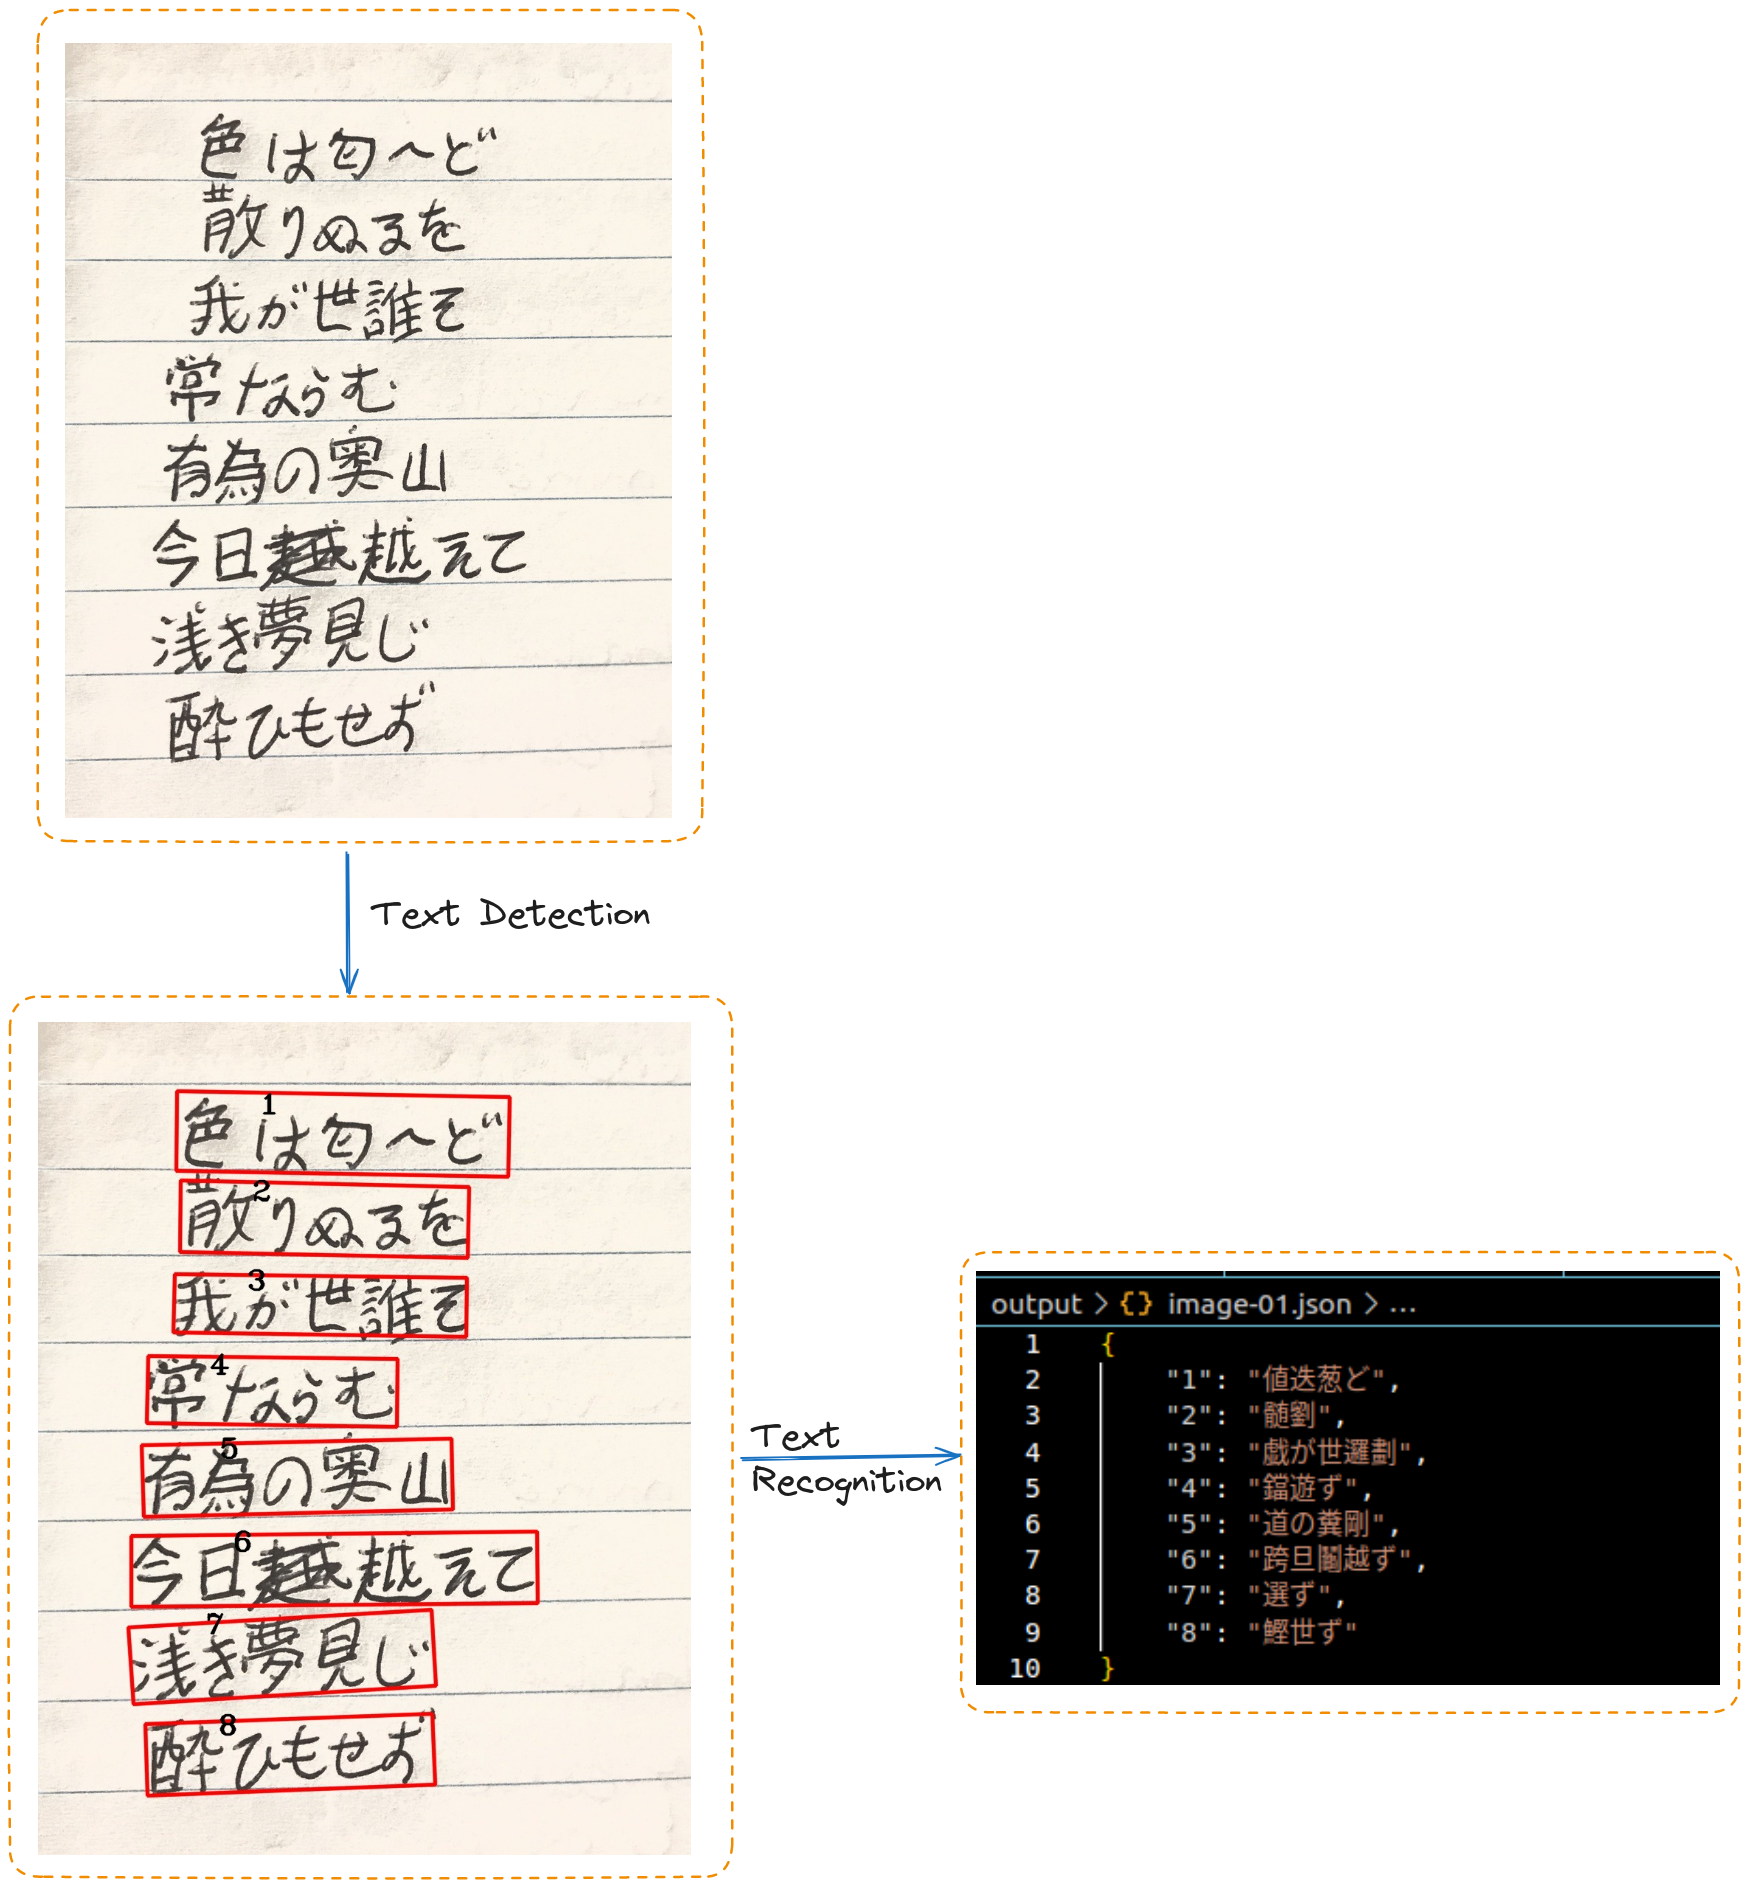 色は匂へど
散りぬるを
我が世誰そ
常ならむ
有為の奥山
今日越えて
浅き夢見じ
酔ひもせず
Text Detection
1
色は匂へど
2
散りぬるを
3
我が世誰そ
4
常ならむ
5
有為の奥山
6
今日越えて
7
浅き夢見じ
8
酔ひもせず
Text
Recognition
output > {} image-01.json > ...
1 {
2 "1": "値迭葱ど",
3 "2": "髄劉",
4 "3": "戯が世邏劃",
5 "4": "鐺遊ず",
6 "5": "道の糞剛",
7 "6": "跨旦鬮越ず",
8 "7": "選ず",
9 "8": "鰹世ず"
10 }